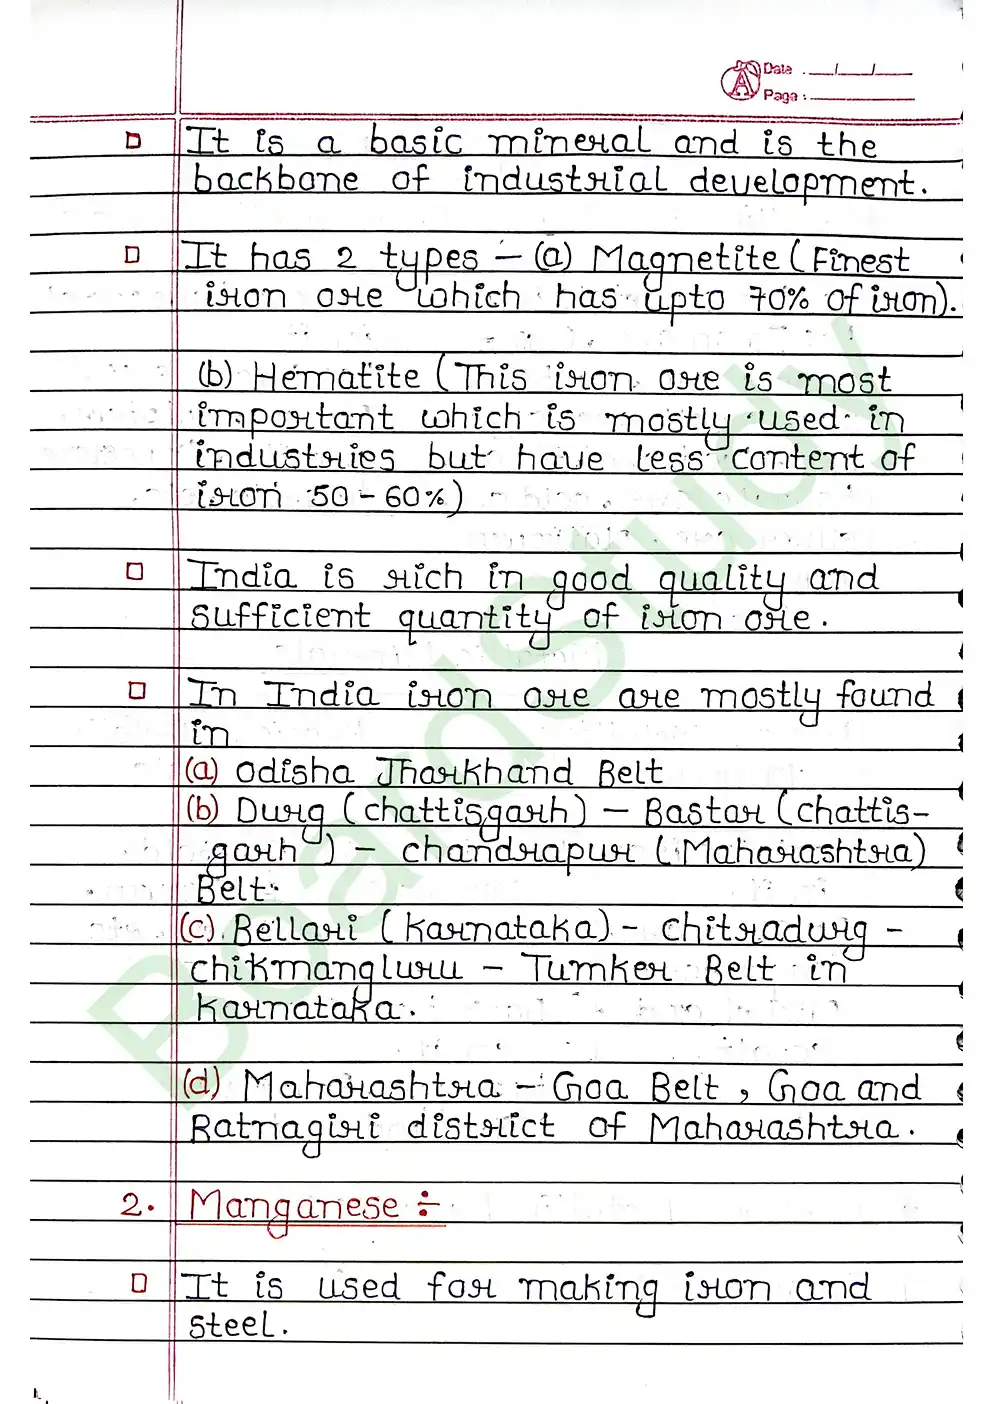 Date : __/__/__
Page :
□ It is a basic mineral and is the
backbone of industrial development.
□ It has 2 types – (a) Magnetite (Finest
iron ore which has upto 70% of iron).
(b) Hematite (This iron ore is most
important which is mostly used in
industries but have less content of
iron 50 – 60%)
□ India is rich in good quality and
sufficient quantity of iron ore.
□ In India iron ore are mostly found
in
(a) Odisha Jharkhand Belt
(b) Durg (chattisgarh) – Bastar (chattis-
garh) – chandrapur (Maharashtra)
Belt.
(c) Bellari (Karnataka) – chitradurg –
chikmangluru – Tumker Belt in
Karnataka.
(d) Maharashtra – Goa Belt, Goa and
Ratnagiri district of Maharashtra.
2. Manganese ÷
□ It is used for making iron and
steel.
BoardStudy